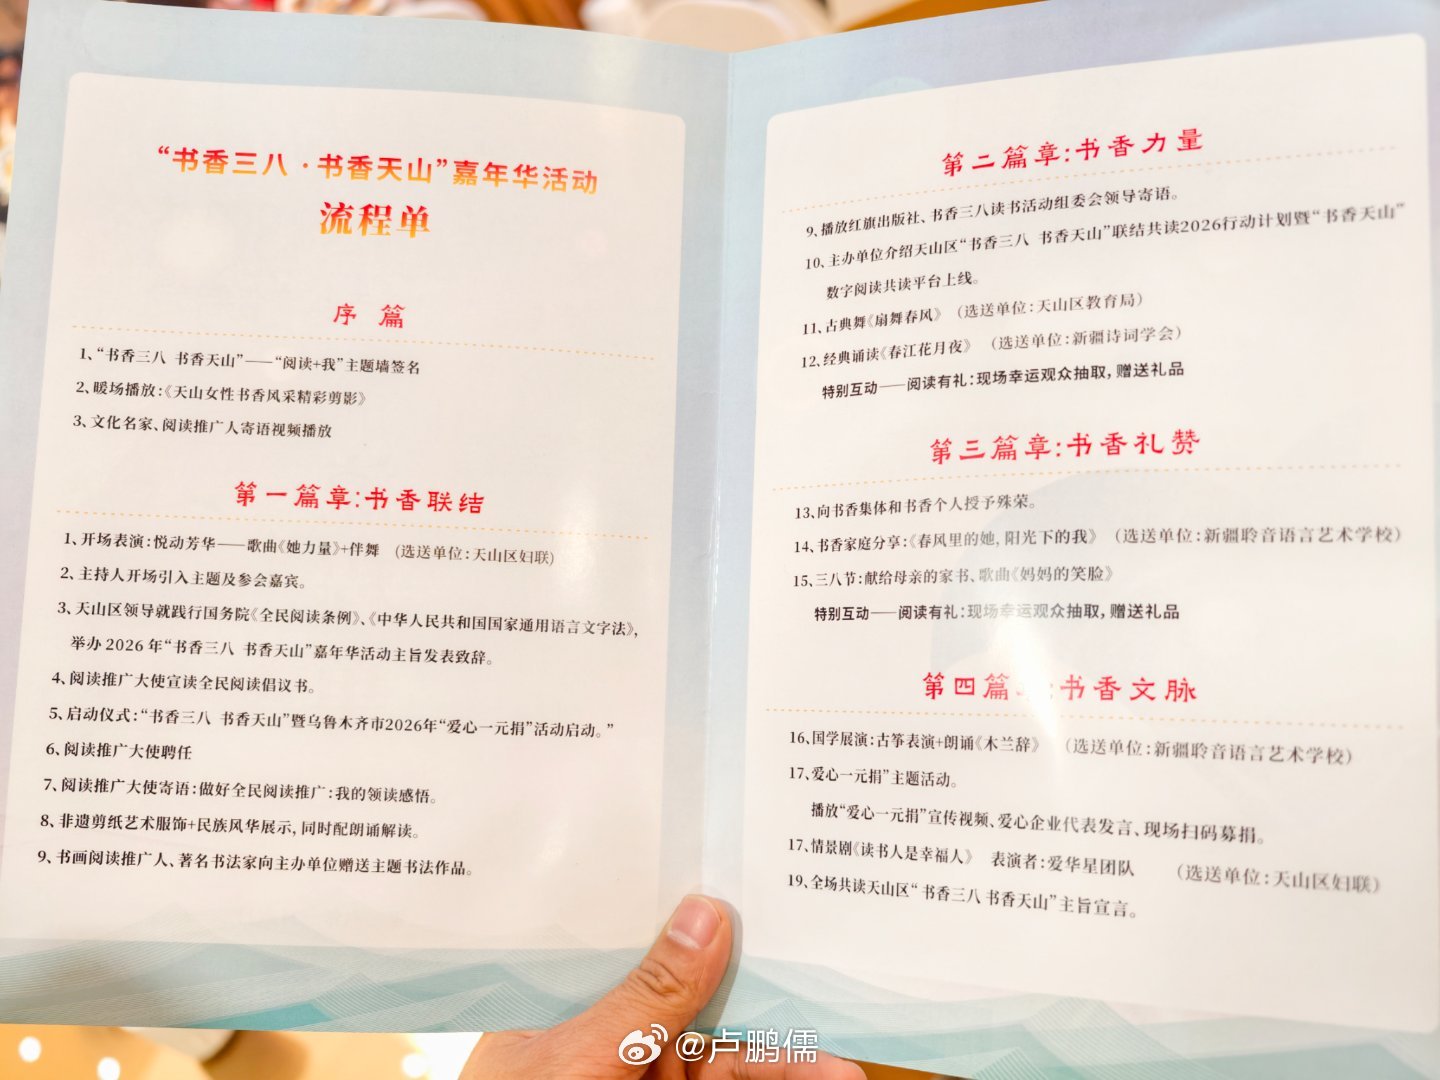 “书香三八·书香天山”嘉年华活动
流程单
序 篇
1、“书香三八 书香天山”——“阅读+我”主题墙签名
2、暖场播放：《天山女性书香风采精彩剪影》
3、文化名家、阅读推广人寄语视频播放
第一篇章：书香联结
1、开场表演：悦动芳华——歌曲《她力量》+伴舞 （选送单位：天山区妇联）
2、主持人开场引入主题及参会嘉宾。
3、天山区领导就践行国务院《全民阅读条例》、《中华人民共和国国家通用语言文字法》，
举办 2026 年“书香三八 书香天山”嘉年华活动主旨发表致辞。
4、阅读推广大使宣读全民阅读倡议书。
5、启动仪式：“书香三八 书香天山”暨乌鲁木齐市2026年“爱心一元捐”活动启动。”
6、阅读推广大使聘任
7、阅读推广大使寄语：做好全民阅读推广：我的领读感悟。
8、非遗剪纸艺术服饰+民族风华展示，同时配朗诵解读。
9、书画阅读推广人、著名书法家向主办单位赠送主题书法作品。
第二篇章：书香力量
9、播放红旗出版社、书香三八读书活动组委会领导寄语。
10、主办单位介绍天山区“书香三八 书香天山”联结共读2026行动计划暨“书香天山”
数字阅读共读平台上线。
11、古典舞《扇舞春风》 （选送单位：天山区教育局）
12、经典诵读《春江花月夜》 （选送单位：新疆诗词学会）
特别互动——阅读有礼：现场幸运观众抽取，赠送礼品
第三篇章：书香礼赞
13、向书香集体和书香个人授予殊荣。
14、书香家庭分享：《春风里的她，阳光下的我》 （选送单位：新疆聆音语言艺术学校）
15、三八节：献给母亲的家书、歌曲《妈妈的笑脸》
特别互动——阅读有礼：现场幸运观众抽取，赠送礼品
第四篇：书香文脉
16、国学展演：古筝表演+朗诵《木兰辞》 （选送单位：新疆聆音语言艺术学校）
17、爱心一元捐”主题活动。
播放“爱心一元捐”宣传视频、爱心企业代表发言、现场扫码募捐。
17、情景剧《读书人是幸福人》 表演者：爱华星团队 （选送单位：天山区妇联）
19、全场共读天山区“书香三八 书香天山”主旨宣言。
@卢鹏儒